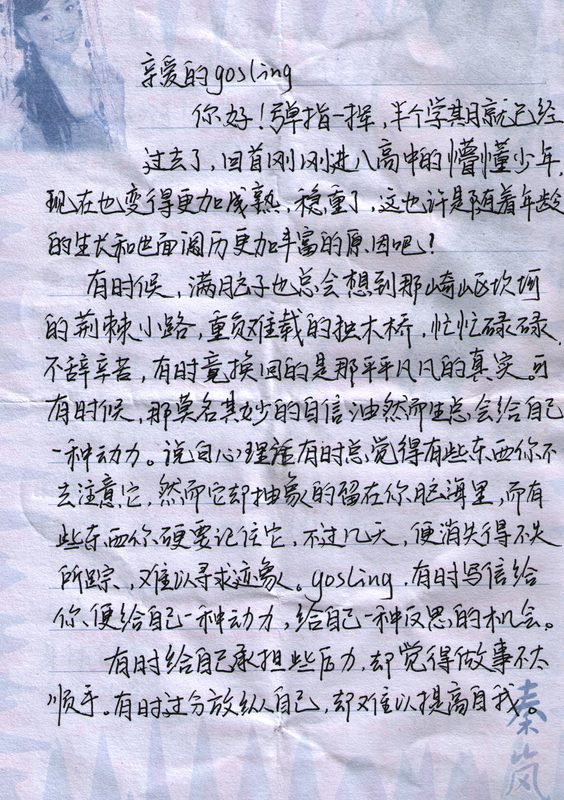 亲爱的gosling
你好！弹指一挥，半个学期就已经
过去了，回首刚刚进入高中的懵懂少年，
现在也变得更加成熟、稳重了，这也许是随着年龄
的生长和世面阅历更加丰富的原因吧？
有时候，满脑子也总会想到那崎岖坎坷
的荆棘小路，重负难载的独木桥，忙忙碌碌，
不辞辛苦，有时竟换回的是那平平凡凡的真实。可
有时候，那莫名其妙的自信油然而生总会给自己
一种动力。说自心理话有时总觉得有些东西你不
去注意它，然而它却抽象的留在你脑海里，而有
些东西你硬要记住它，不过几天，便消失得不失
所踪，难以寻求迹象。gosling，有时写信给
你、便给自己一种动力，给自己一种反思的机会。
有时给自己承担些压力，却觉得做事不太
顺手。有时过分放纵自己，却难以提高自我。
秦岚